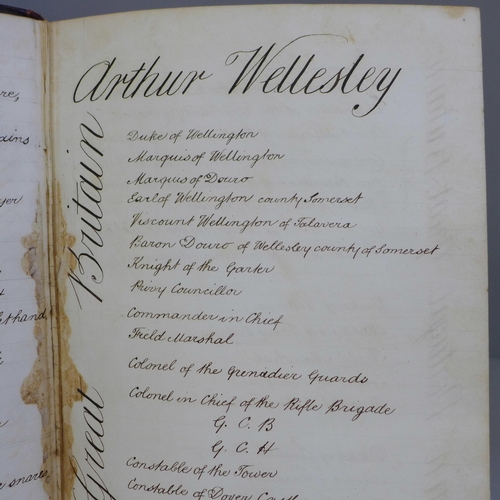 Arthur Wellesley
Great Britain
Duke of Wellington
Marquis of Wellington
Marquis of Douro
Earl of Wellington county Somerset
Viscount Wellington of Talavera
Baron Douro of Wellesley county of Somerset
Knight of the Garter
Privy Councillor
Commander in Chief
Field Marshal
Colonel of the Grenadier Guards
Colonel in Chief of the Rifle Brigade
G. C. B
G. C. H
Constable of the Tower
Constable of Dover